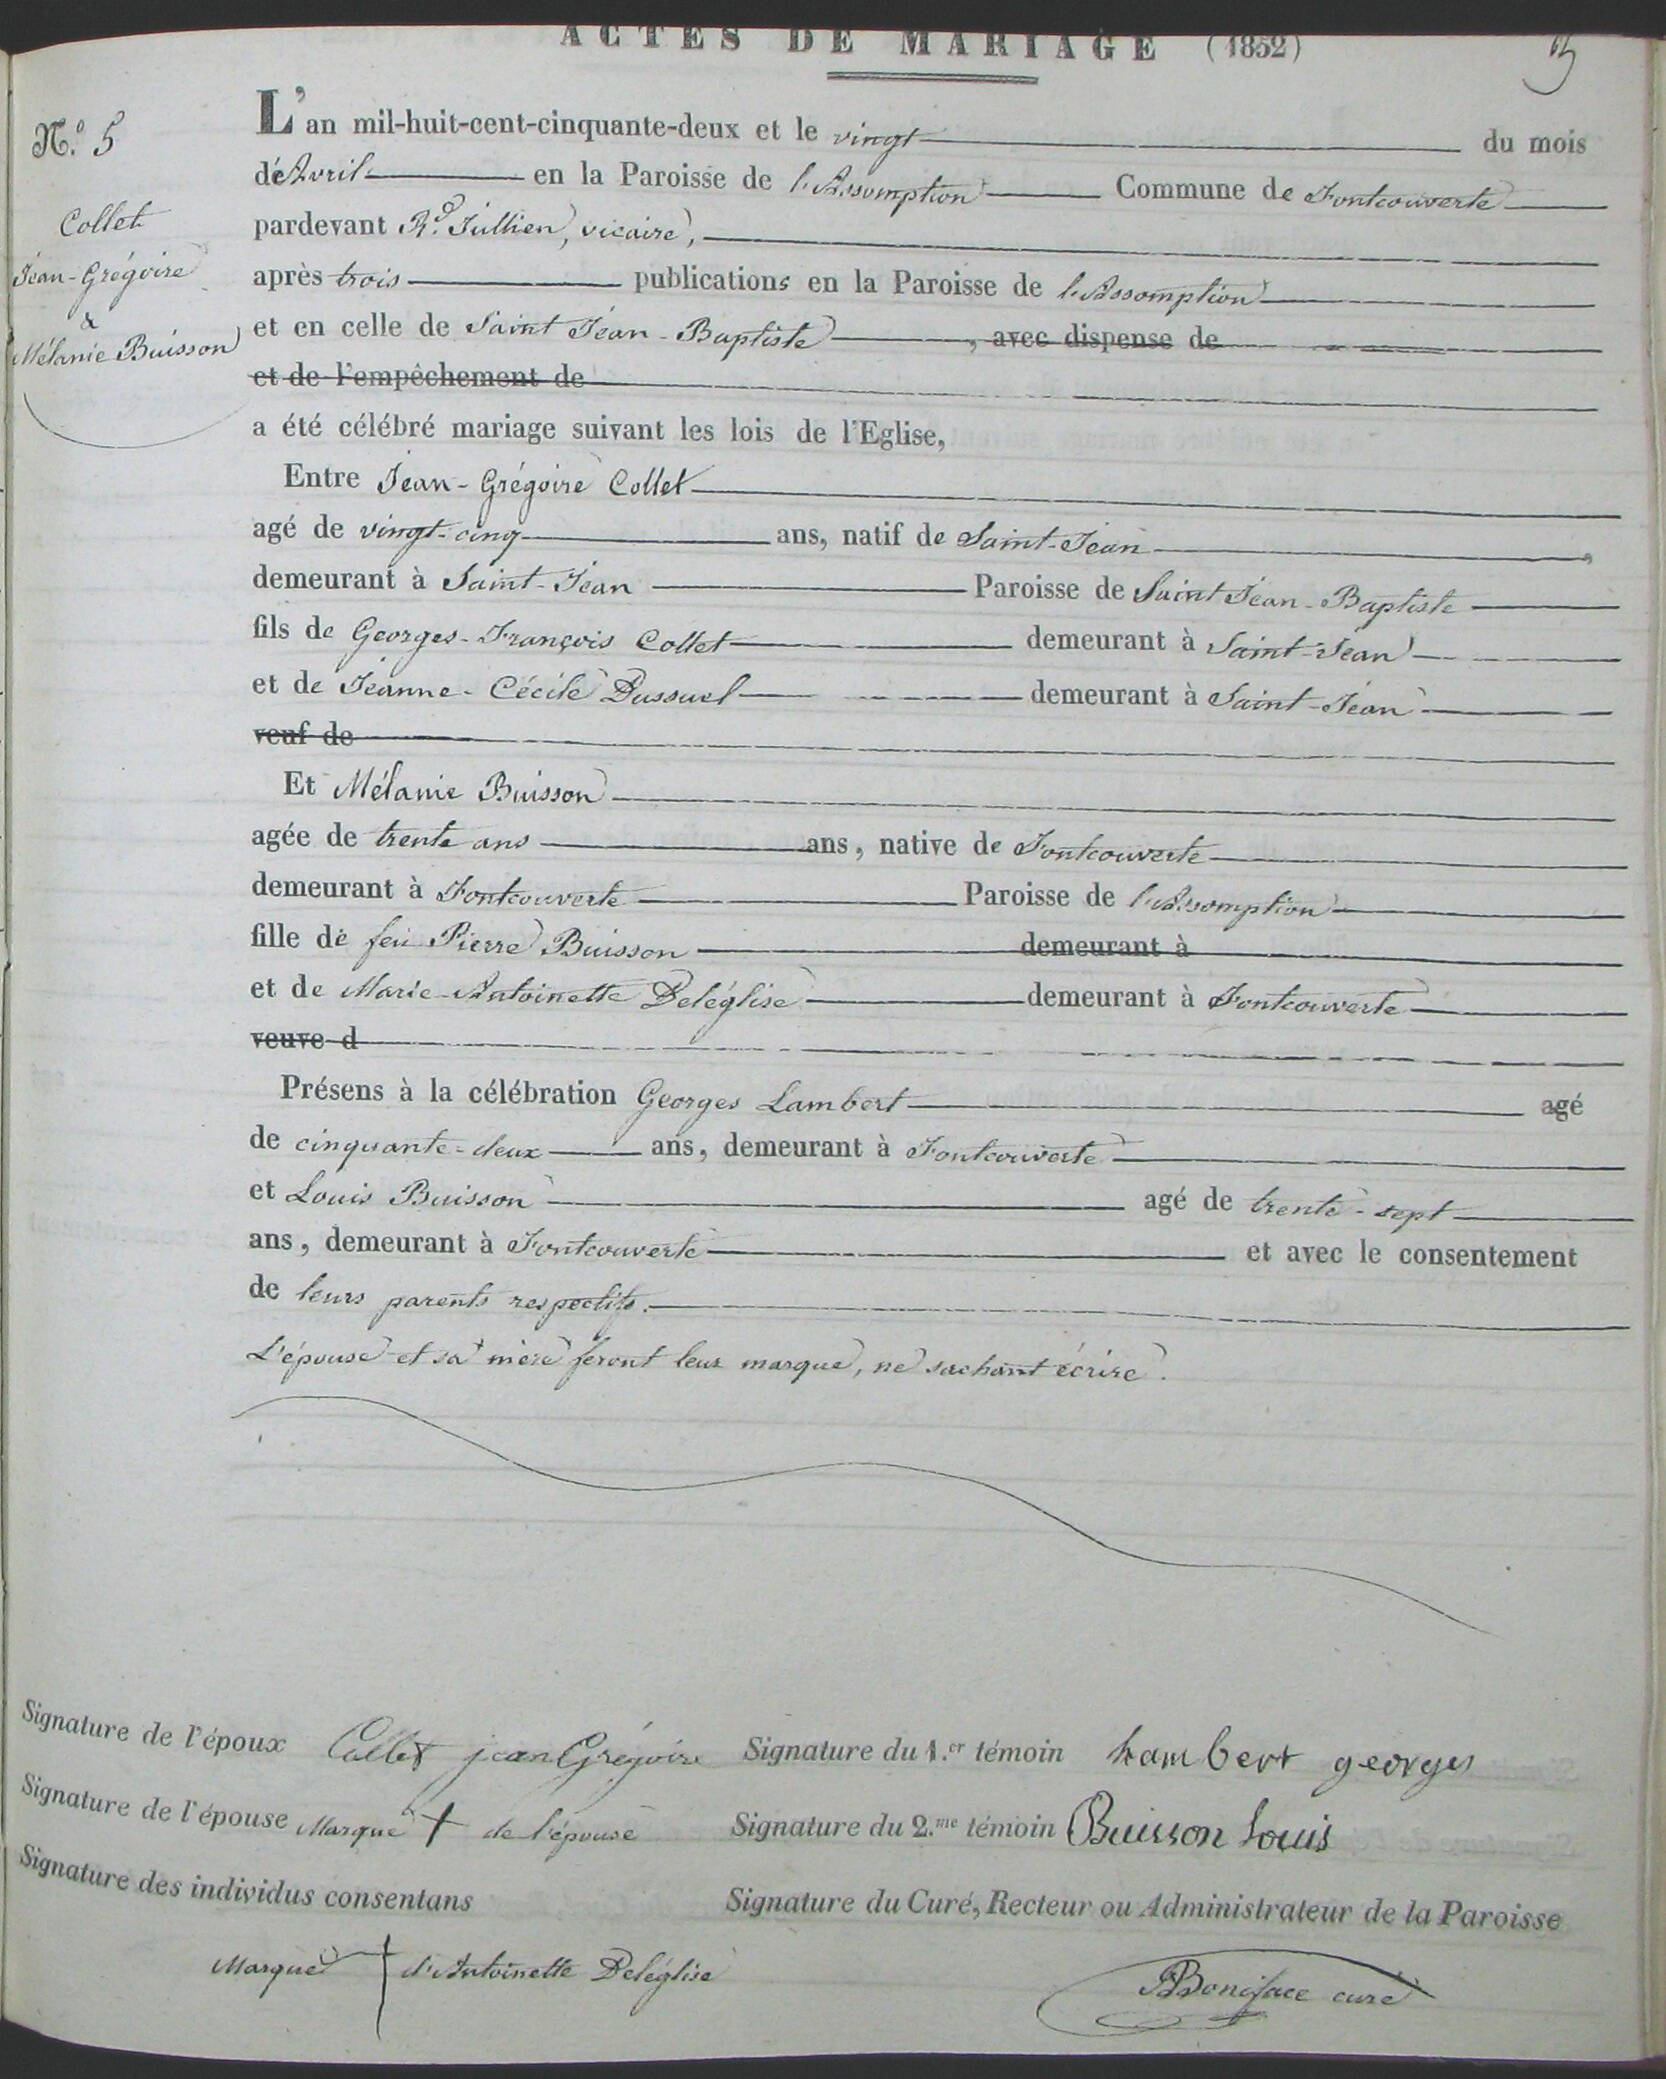 ACTES DE MARIAGE (1852)
N.º 5
Collet
Jean-Grégoire
&
Mélanie Buisson
L'an mil-huit-cent-cinquante-deux et le vingt du mois
de Avril en la Paroisse de l'Assomption Commune de Fontcouverte
pardevant Rd. Jullien, vicaire,
après trois publications en la Paroisse de l'Assomption
et en celle de Saint Jean-Baptiste, avec dispense de
et de l'empêchement de
a été célébré mariage suivant les lois de l'Eglise,
Entre Jean-Grégoire Collet
agé de vingt-cinq ans, natif de Saint-Jean,
demeurant à Saint-Jean Paroisse de Saint Jean-Baptiste
fils de Georges-François Collet demeurant à Saint-Jean
et de Jeanne-Cécile Dussuel demeurant à Saint-Jean
veuf de
Et Mélanie Buisson
agée de trente ans ans, native de Fontcouverte
demeurant à Fontcouverte Paroisse de l'Assomption
fille de feu Pierre Buisson demeurant à
et de Marie-Antoinette Deléglise demeurant à Fontcouverte
veuve d
Présens à la célébration Georges Lambert agé
de cinquante-deux ans, demeurant à Fontcouverte
et Louis Buisson agé de trente-sept
ans, demeurant à Fontcouverte et avec le consentement
de leurs parents respectifs.
L'épouse et sa mère feront leur marque, ne sachant écrire.
Signature de l'époux Collet jean Grégoire Signature du 1.er témoin Lambert georges
Signature de l'épouse Marque + de l'épouse Signature du 2.me témoin Buisson Louis
Signature des individus consentans Signature du Curé, Recteur ou Administrateur de la Paroisse
Marque + d'Antoinette Deléglise Boniface curé